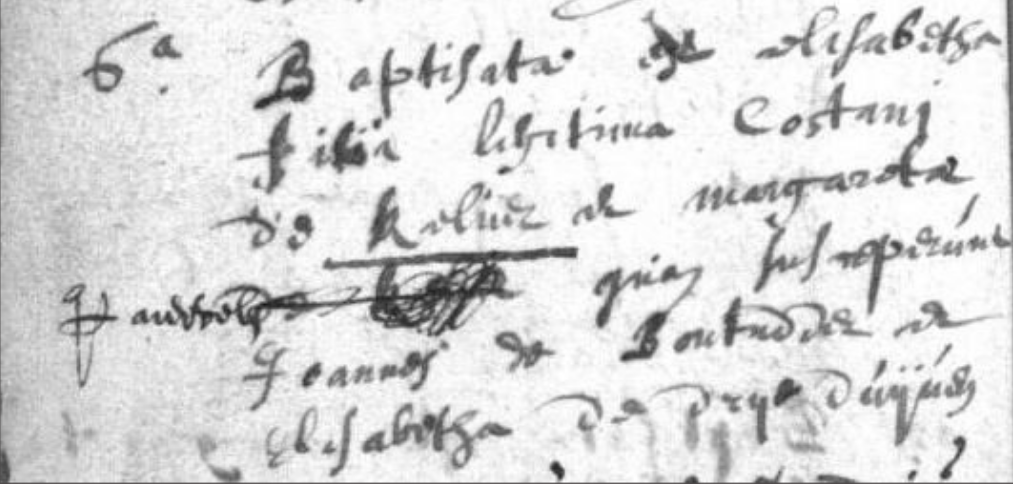 6.a Baptisata est elisabetha
filia lisitima Costani
de Keluer et margareta
pauwels quam susceperunt
Joannes de Bontridder et
Elisabetha de